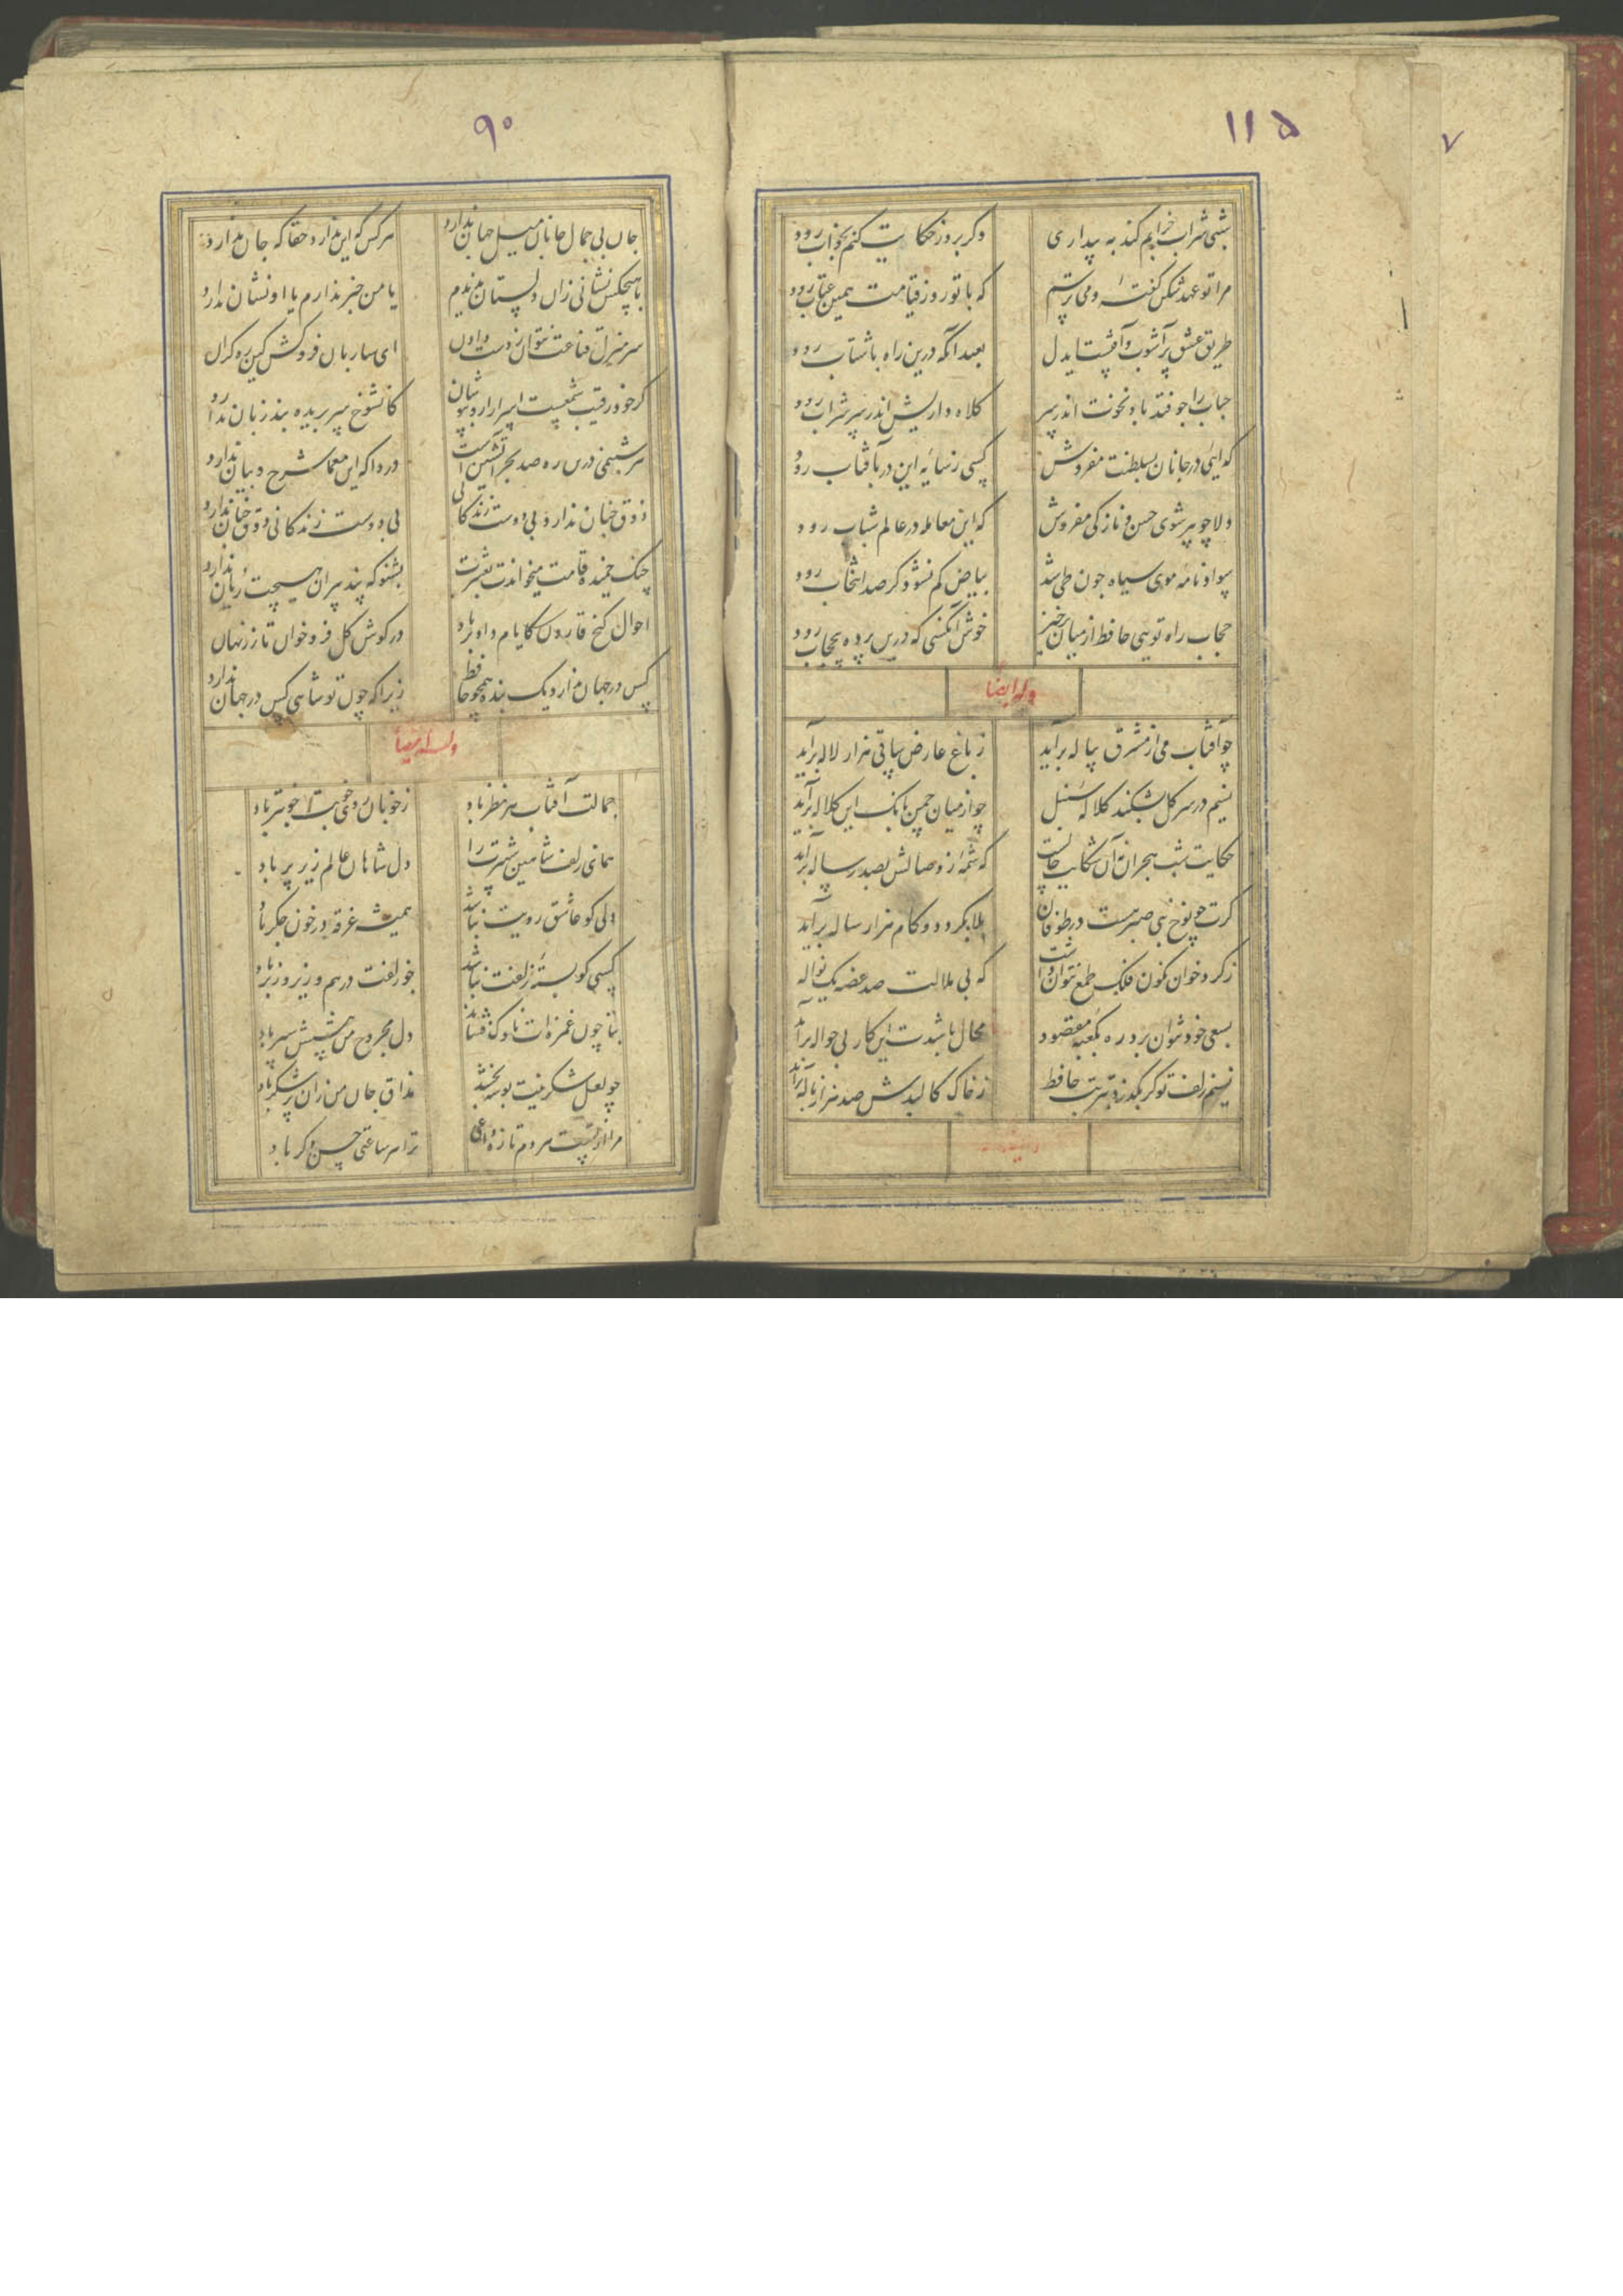 ۱۱۵
۷
شبی شراب خرابم کند به بیداری
وگر بروز حکایت کنم بخواب رود
مرا تو عهدشکن گفتهٔ و می ترسم
که با تو روز قیامت همین عتاب رود
طریق عشق پر آشوب و آفتست ایدل
بیفتد آنکه درین راه با شتاب رود
حباب را چو فتد باد نخوت اندر سر
کلاه داریش اندر سر شراب رود
گدایی در جانان بسلطنت مفروش
کسی ز سایهٔ این در بآفتاب رود
دلا چو پیر شوی حسن و نازکی مفروش
که این معامله در عالم شباب رود
سواد نامهٔ موی سیاه چون طی شد
بیاض کم نشود گر صد انتخاب رود
حجاب راه تویی حافظ از میان برخیز
خوش آنکسی که درین پرده بی حجاب رود
وله ایضا
چو آفتاب می از مشرق پیاله برآید
ز باغ عارض ساقی هزار لاله برآید
نسیم در سر گل بشکند کلالهٔ سنبل
چو از میان چمن بانک این کلاله برآید
حکایت شب هجران نه آن شکایت حالست
که شمهٔ ز وصالش بصد رساله برآید
گرت چو نوح نبی صبر هست در طوفان
بلا بگردد و کام هزار ساله برآید
ز گرد خوان نگون فلک طمع نتوان داشت
که بی ملالت صد غصه یک نواله
بسعی خود نتوان برد ره بکعبه مقصود
محال باشدت این کار بی حواله برآید
نسیم زلف تو گر بگذرد بتربت حافظ
ز خاک کالبدش صد هزار ناله برآید
۹۰
جان بی جمال جانان میل جهان ندارد
هر کس که این ندارد حقا که جان ندارد
با هیچکس نشانی زان دلستان ندیدم
یا من خبر ندارم یا او نشان ندارد
سر منزل قناعت نتوان ز دست دادن
ای ساربان فروکش کین ره کران
گر خود رقیب شمعست اسرار ازو بپوشان
کان شوخ سر بریده بند زبان ندارد
هر شبنمی درین ره صد بحر آتشین است
دردا که این معما شرح و بیان ندارد
ذوق چنان ندارد بی دوست زندگانی
بی دوست زندگانی ذوق چنان ندارد
چنگ خمیده قامت میخواندت بعشرت
بشنو که پند پیران هیچت زیان ندارد
احوال گنج قارون کایام داد برباد
در گوش گل فروخوان تا زر نهان
کس در جهان ندارد یک بنده همچو حافظ
زیرا که چون تو شاهی کس در جهان ندارد
وله ایضا
جمالت آفتاب هر نظر باد
ز خوبان روی خوبت خوبتر باد
همای زلف شاهین شهپرت را
دل شاهان عالم زیر پر باد
دلی کو عاشق رویت نباشد
همیشه غرقه در خون جگر باد
کسی کو بستهٔ زلفت نباشد
چو زلفت درهم و زیر و زبر باد
بتا چون غمزه ات ناوک فشاند
دل مجروح من پیشش سپر باد
چو لعل شکرینت بوسه بخشد
مذاق جان من زان پر شکر باد
مرا از تست هر دم تازه
ترا هر ساعتی حسن دگر باد